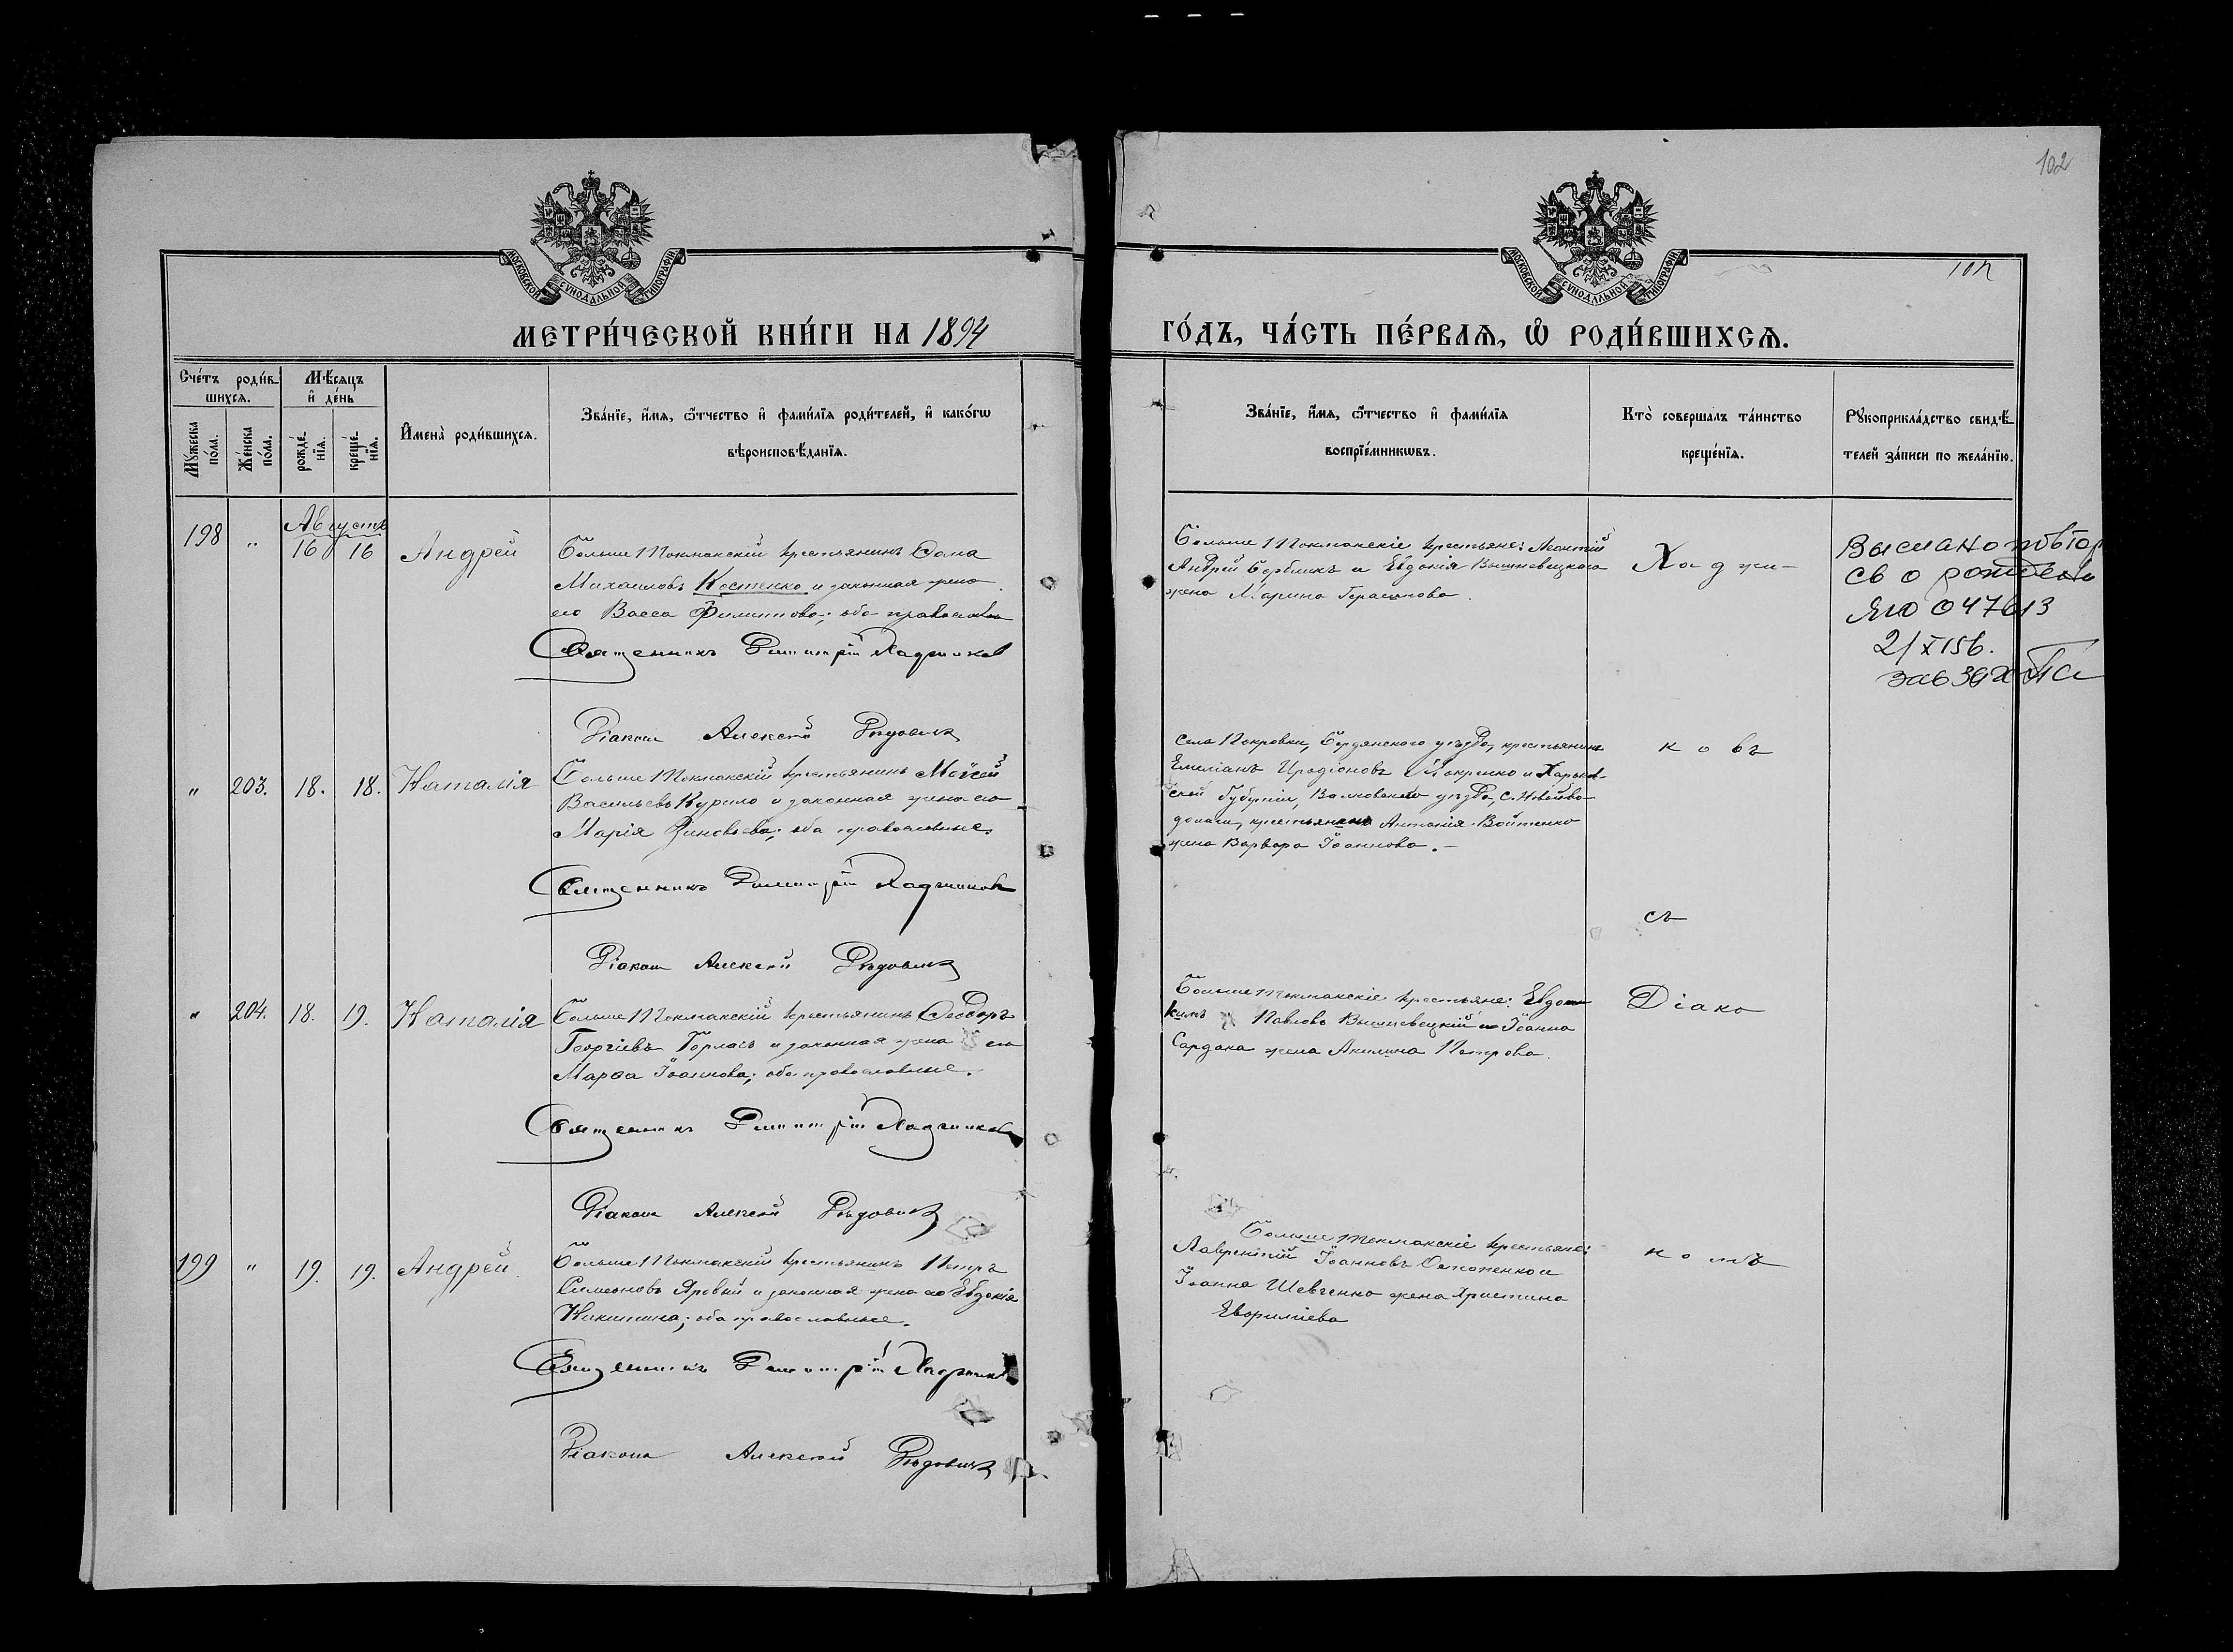 102
102
МОСКОВСКОЙ СѴНОДАЛЬНОЙ ТИПОГРАФІИ
МОСКОВСКОЙ СѴНОДАЛЬНОЙ ТИПОГРАФІИ
МЕТРИ́ЧЕСКОЙ КНИ́ГИ НА 1894
ГО́ДЪ, ЧА́СТЬ ПЕ́РВАѦ, Ѡ҆ РОДИ́ВШИХСѦ.
Сче́тъ роди́в-
шихсѧ.
Мѣ́сѧцъ
и҆ де́нь
Мꙋ́жеска
по́ла.
Же́нска
по́ла.
рожде́-
нїѧ.
креще́-
нїѧ.
И҆мена̀ роди́вшихсѧ.
Зва́нїе, и҆́мѧ, ѻ҆́тчество и҆ фами́лїѧ роди́телей, и҆ како́гѡ
вѣроисповѣ́данїѧ.
Зва́нїе, и҆́мѧ, ѻ҆́тчество и҆ фами́лїѧ
воспрїе́мникѡвъ.
Кто̀ соверша́лъ та́инство
креще́нїѧ.
Рꙋкоприкла́дство свидѣ́-
телей за́писи по жела́нїю.
198 " Августъ 16 16 Андрей
Больше Токмакскій крестьянинъ Ѳома
Михаиловъ Костенко и законная жена
его Васса Филиппова; оба православные
Священникъ Димитрій Хаджиновъ
Діаконъ Алексій
Больше Токмакскіе крестьяне: Леонтій
и Евдокія Вишневецкаго
жена Марина Герасимова.
Хаджи-
Выслано повтор
св о рождении
ЯЮ 047613
21/XI 56.
" 203. 18. 18. Наталія
Больше Токмакскій крестьянинъ Моѵсей
Васильевъ Курило и законная жена его
Марія Зиновьева; оба православные.
Священникъ Димитрій Хаджиновъ
Діаконъ Алексій
Села Покровки, Бердянскаго уѣзда, крестьянинъ
Емеліанъ Иродіоновъ и Харьков-
ской Губерніи, Валковскаго уѣзда, с.
крестьянина Антонія Войтенко
жена Варвара Іоаннова. –
новъ
съ
" 204. 18. 19. Наталія
Больше Токмакскій крестьянинъ Ѳеодоръ
Георгіевъ Горлачъ и законная жена его
Марѳа Іоаннова; оба православные.
Священникъ Димитрій Хаджиновъ
Діаконъ Алексій
Больше Токмакскіе крестьяне: Евдо-
кимъ Павловъ Вишневецкій и Іоанна
Сардака жена Акилина Петрова.
Діако
199 " 19. 19. Андрей
Больше Токмакскій крестьянинъ Петръ
Симеоновъ Яровый и законная жена его Евдокія
Никитина; оба православные.
Священникъ Димитрій Хаджиновъ
Діаконъ Алексій
Больше Токмакскіе крестьяне:
Лаврентій Іоанновъ Остапенко и
Іоанна Шевченко жена Христина
номъ